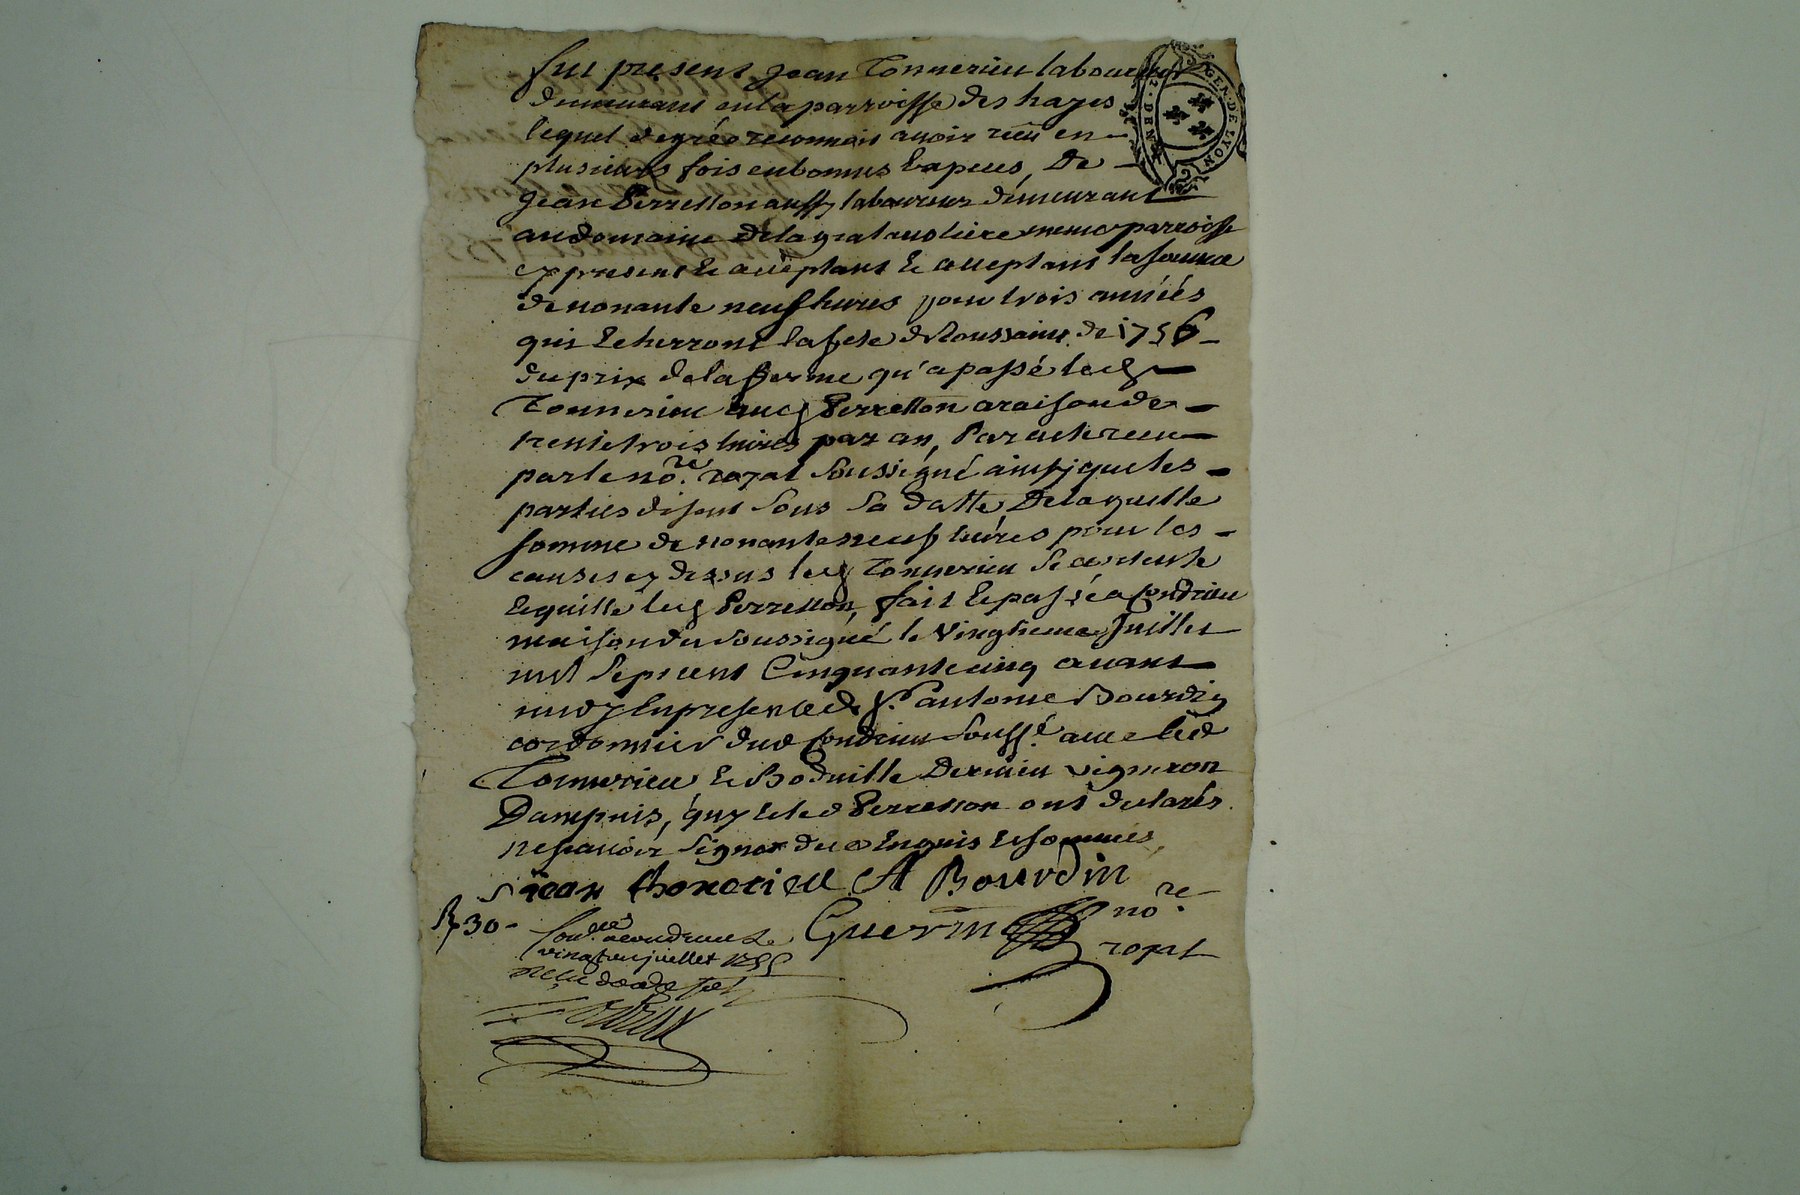 fut present Jean Tonnerieu laboureur
demeurant en la parroisse des hayes
lequel de gré a reconnu avoir reçu en
plusieurs fois en bonnes Espeues, De
Jean Perrellon aussy laboureur demeurant
au domaine de la meme parroisse
cy present le acceptant le acceptant la somme
de nonante neuf livres pour trois années
qui Echerront la feste de Toussaint de 1756
du prix de la ferme qu'a passé led
Tonnerieu aud Perrellon a raison de
trente trois livres par an, Par acte reçu
par le no.re royal soussigné ainsy que les
parties disent sous sa datte, De laquelle
somme de nonante neuf livres pour les
causes cy dessus led Tonnerieu se contente
Equitte led Perrellon, fait Epassé a Condrieu
maison du soussigné le vingtieme Juillet
mil sept cent Cinquante cinq avant
midy En presence de Sr. antoine Bourdin
cordonnier dud Condrieu souss.é avec led
Tonnerieu Le Dervieu vigneron
Dampuis, quy Et led Perrellon ont declarés
ne scavoir signer de ce Enquis Et sommés
jean thonerieu A Bourdin
30- Guerin no.re
royal
Con.lé a condrieu Le
vingt juillet 1755
reçu douze sols
GEN. DE LYON